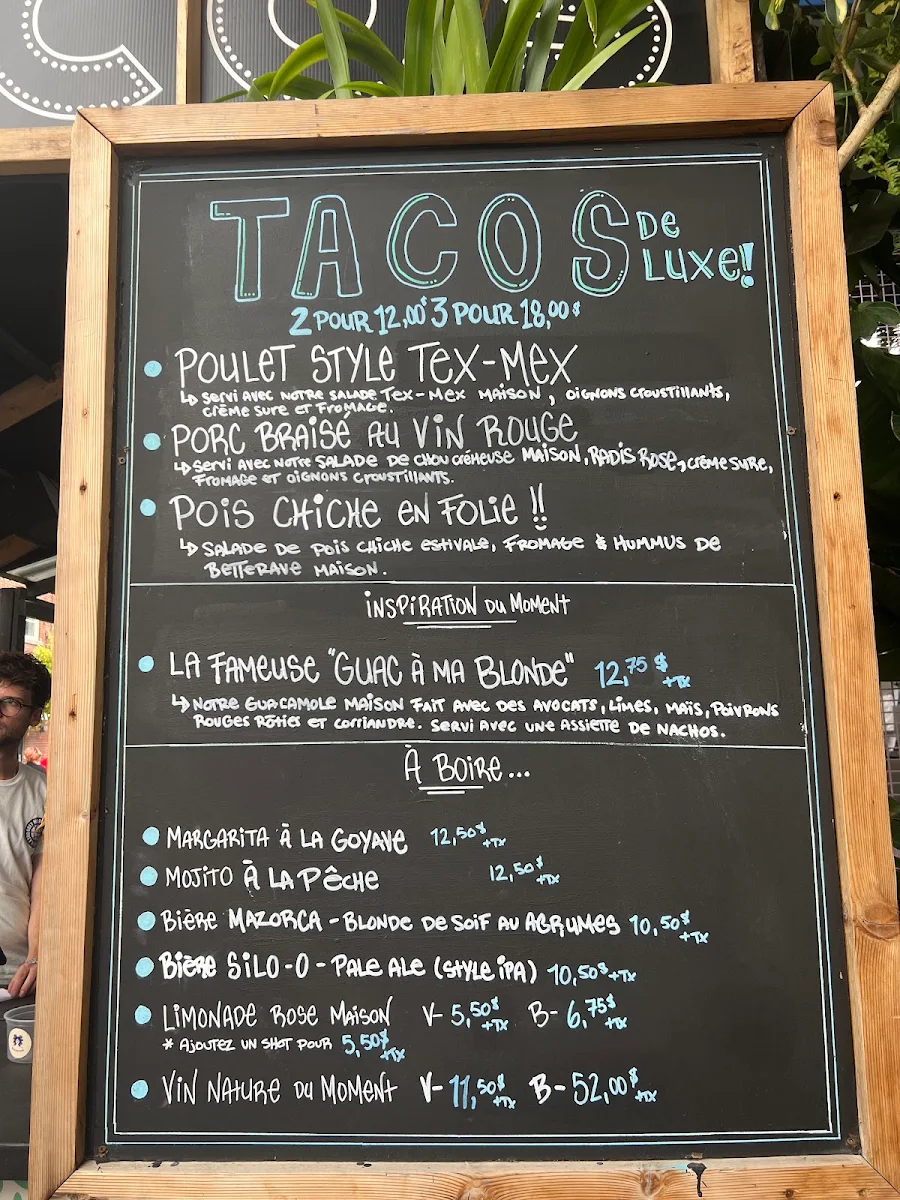 TACOS DE LUXE!
2 POUR 12,00$ 3 POUR 18,00$
POULET STYLE TEX-MEX
↳ SERVI AVEC NOTRE SALADE TEX-MEX MAISON, OIGNONS CROUSTILLANTS,
CRÈME SURE ET FROMAGE.
PORC BRAISÉ AU VIN ROUGE
↳ SERVI AVEC NOTRE SALADE DE CHOU CRÉMEUSE MAISON, RADIS ROSE, CRÈME SURE,
FROMAGE ET OIGNONS CROUSTILLANTS.
POIS CHICHE EN FOLIE !!
↳ SALADE DE POIS CHICHE ESTIVALE, FROMAGE & HUMMUS DE
BETTERAVE MAISON.
INSPIRATION DU MOMENT
LA FAMEUSE "GUAC À MA BLONDE" 12,75 $ +TX
↳ NOTRE GUACAMOLE MAISON FAIT AVEC DES AVOCATS, LIMES, MAÏS, POIVRONS
ROUGES RÔTIES ET CORRIANDRE. SERVI AVEC UNE ASSIETTE DE NACHOS.
À BOIRE...
MARGARITA À LA GOYAVE 12,50$ +TX
MOJITO À LA PÊCHE 12,50$ +TX
BIÈRE MAZORCA - BLONDE DE SOIF AU AGRUMES 10,50$ +TX
BIÈRE SILO-O - PALE ALE (STYLE IPA) 10,50$ +TX
LIMONADE ROSE MAISON V- 5,50$ +TX B- 6,75$ +TX
* AJOUTEZ UN SHOT POUR 5,50$ +TX
VIN NATURE DU MOMENT V- 11,50$ +TX B- 52,00$ +TX